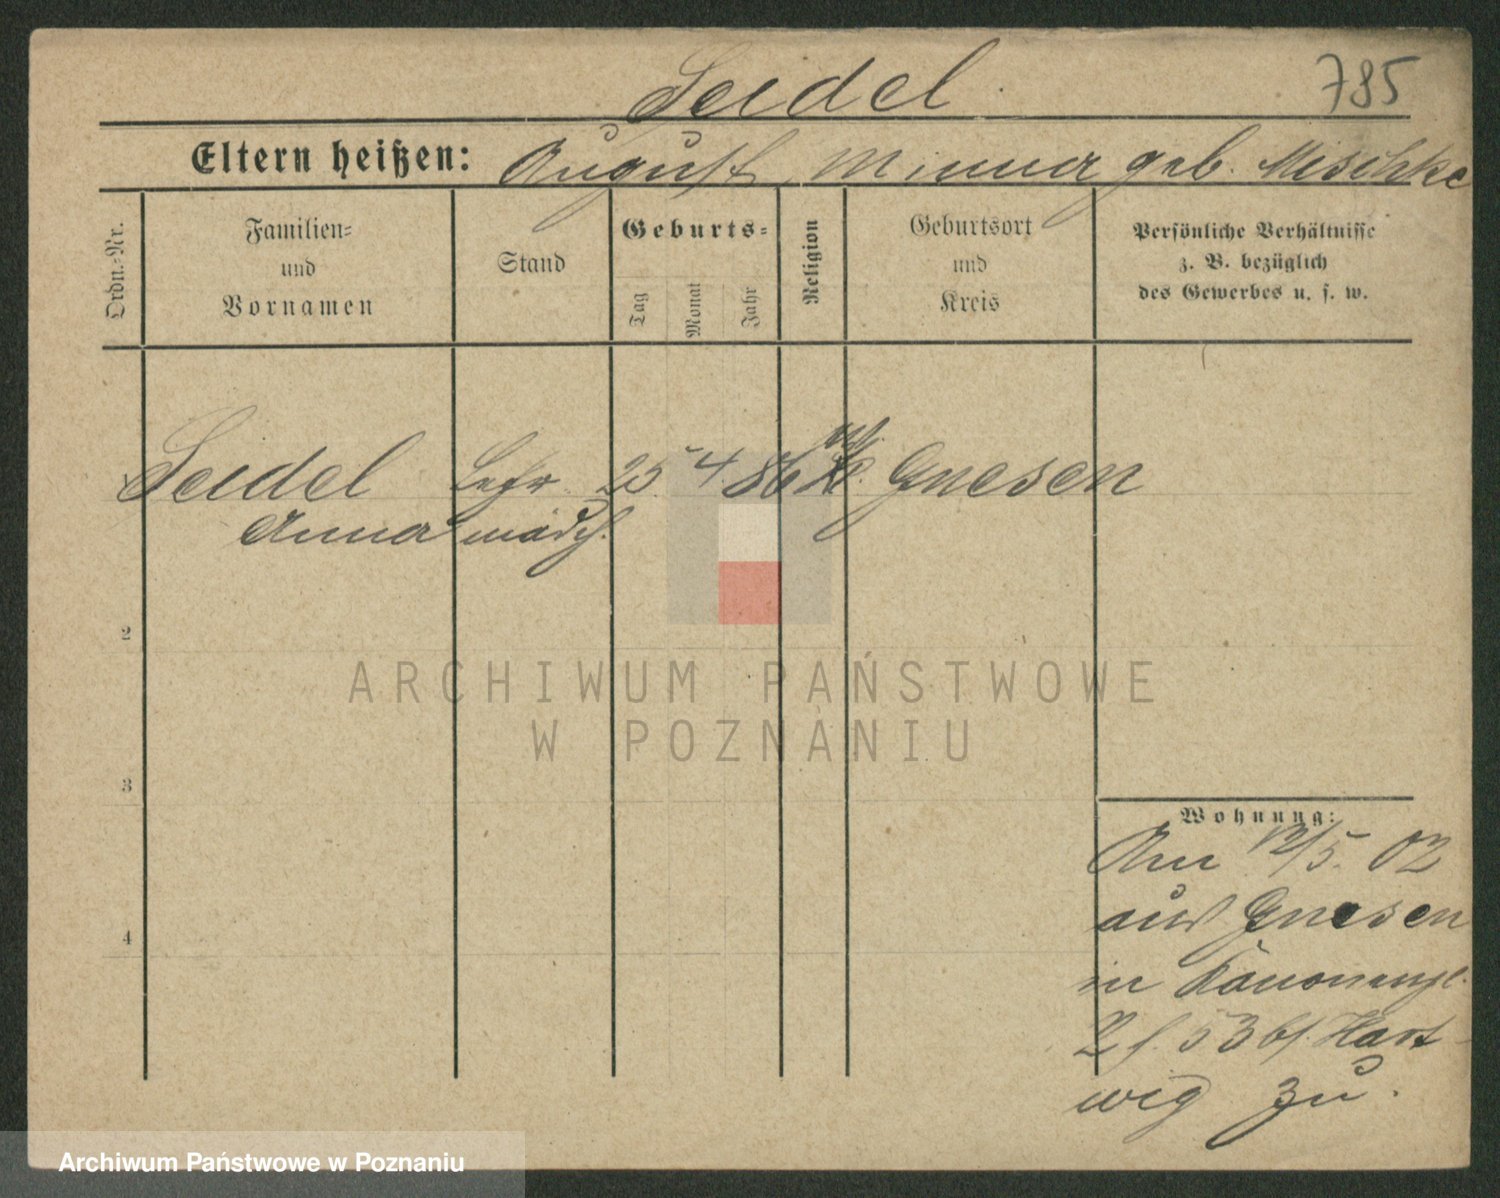 Seidel
785
Eltern heißen: August, Minna geb. Mischke
Ordn.-Nr.
Familien-
und
Vornamen
Stand
Geburts-
Tag
Monat
Jahr
Religion
Geburtsort
und
Kreis
Persönliche Verhältnisse
z. B. bezüglich
des Gewerbes u. s. w.
Seidel Lehr 25. 4 86 Gnesen
Anna mädch.
2
3
4
ARCHIWUM PAŃSTWOWE
W POZNANIU
Wohnung:
Am 12/5. 02
aus Gnesen
in
2 53 bei Hart-
wig zu.
Archiwum Państwowe w Poznaniu